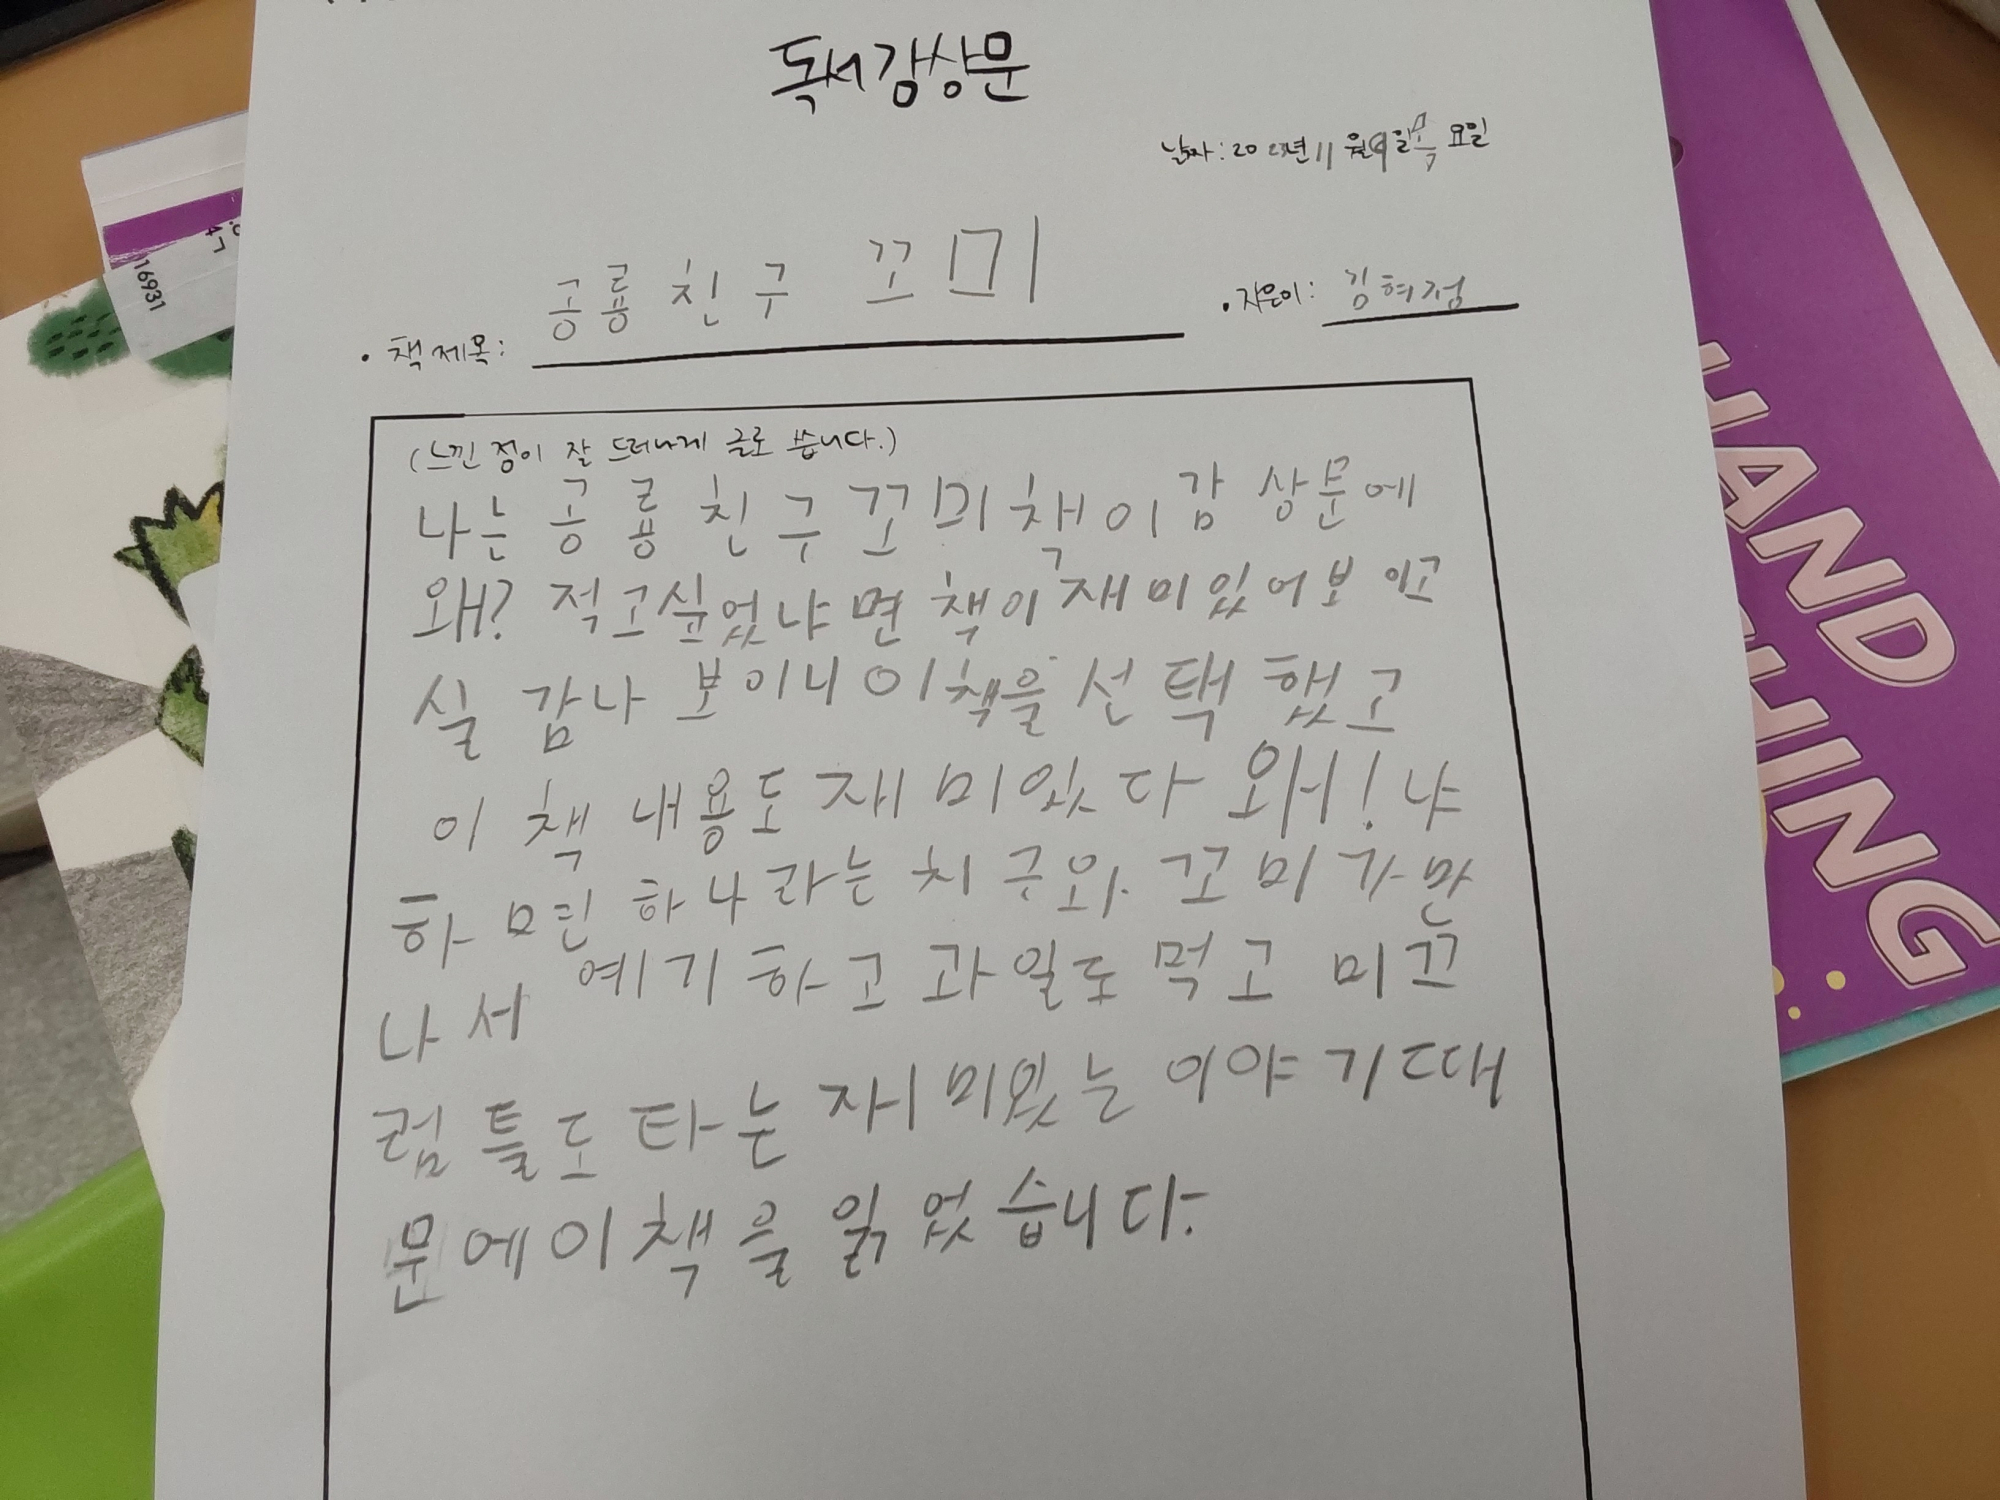 독서감상문
날짜: 2023년 11월 9일 목요일
• 책 제목: 공룡 친구 꼬미
• 지은이: 김혜정
(느낀 점이 잘 드러나게 글로 씁니다.)
나는 공룡 친구 꼬미 책이 감상문에
왜? 적고싶었냐면 책이 재미있어보이고
실감나 보이니 이책을 선택했고
이 책 내용도 재미있다 왜! 냐
하면 하나라는 치구와 꼬미가 만
나서 예기하고 과일도 먹고 미끄
럼틀도 타는 재미있는 이야기 때
문에 이 책을 읽었습니다.
16931
HAND